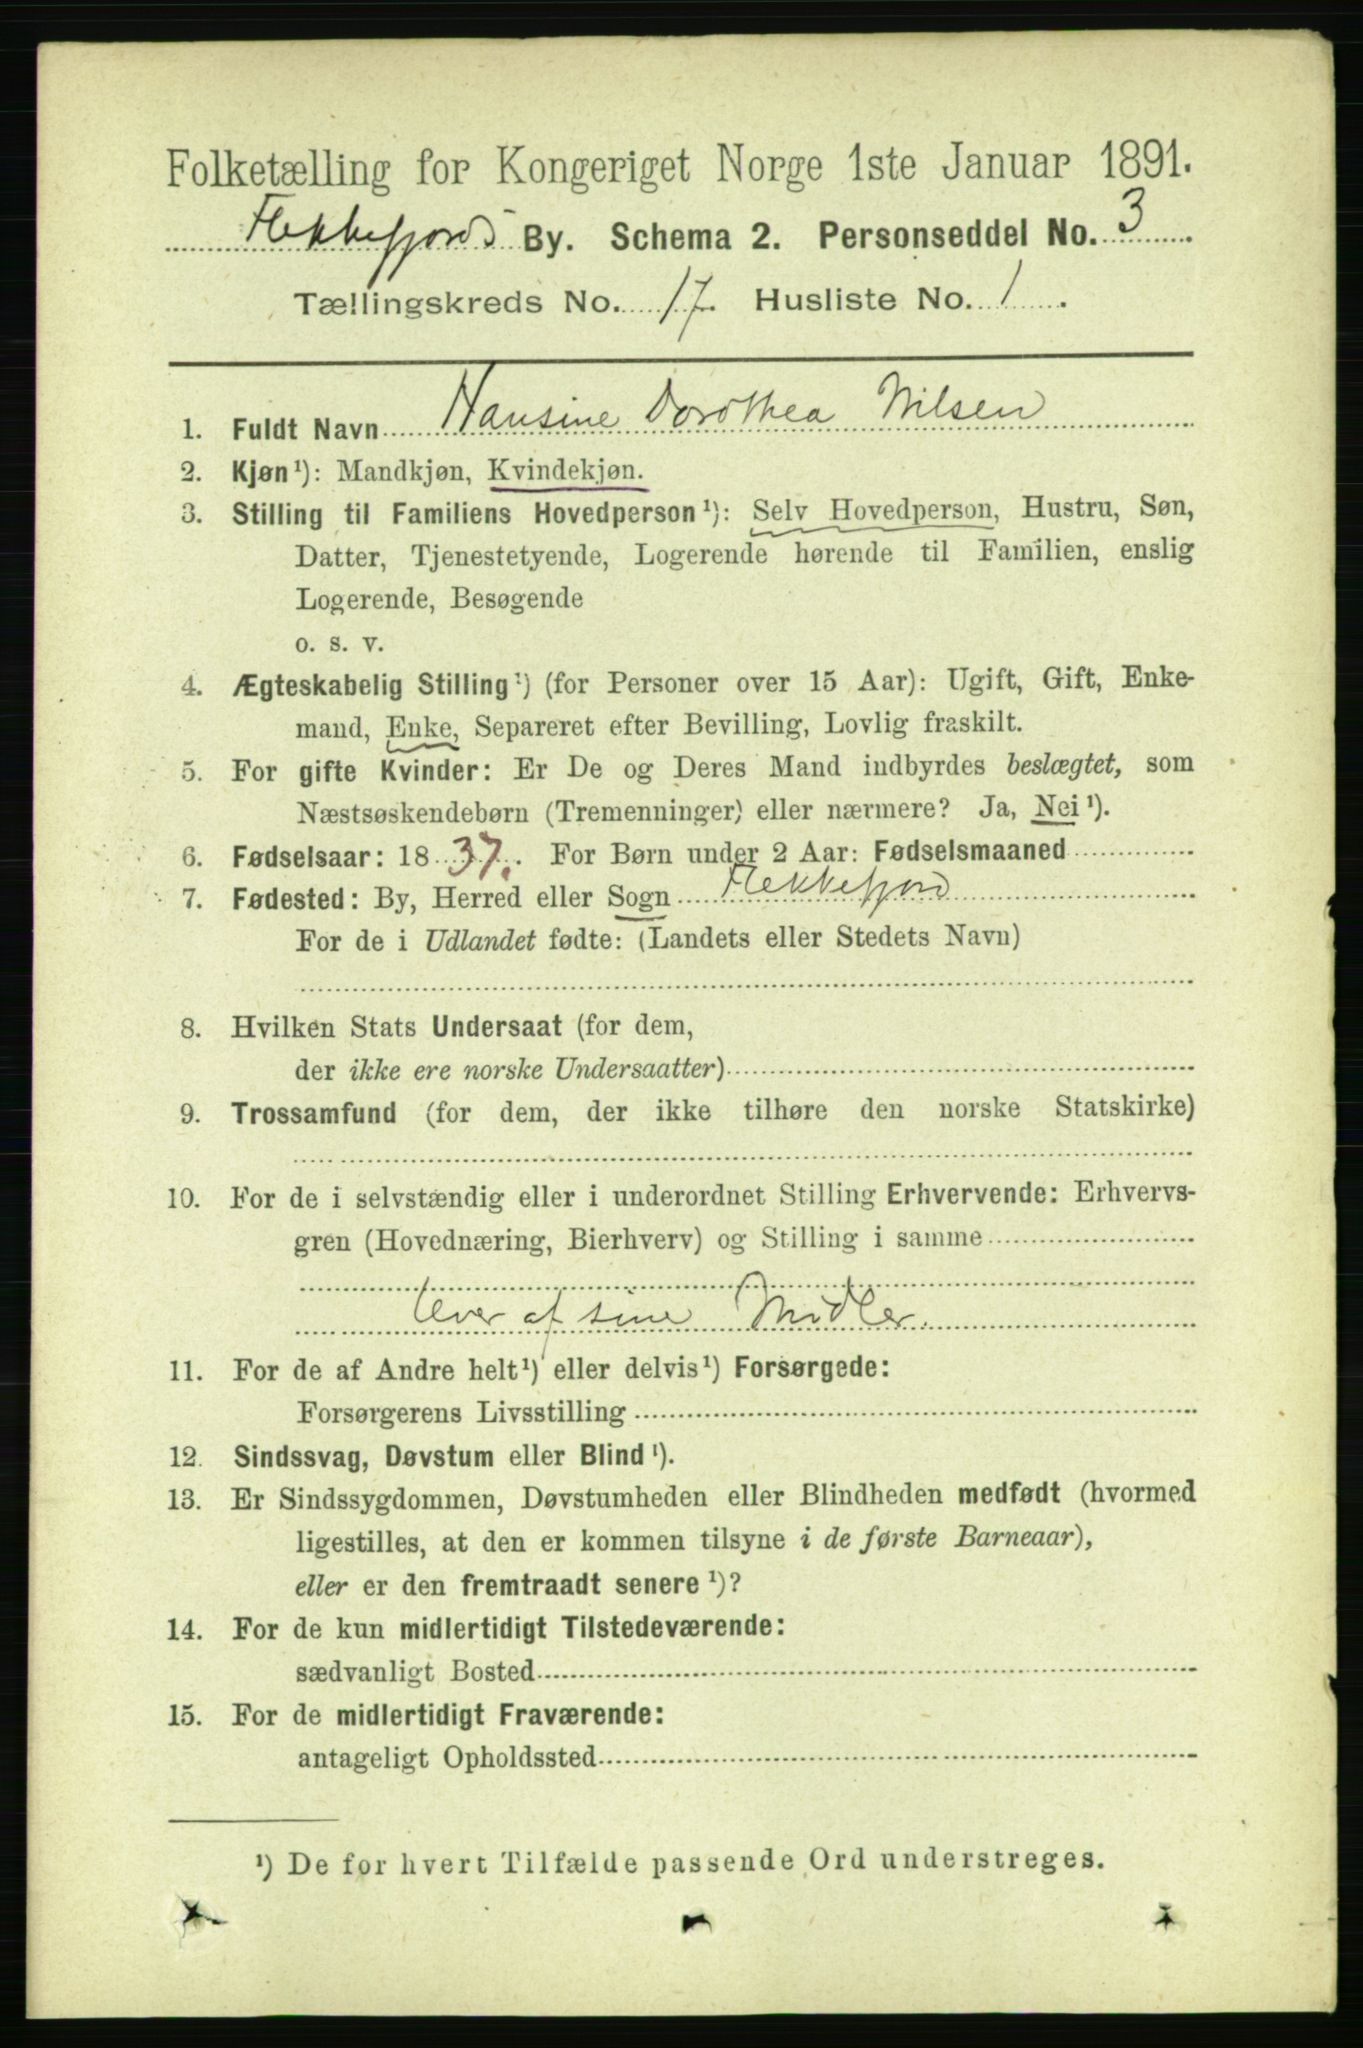 Folketælling for Kongeriget Norge 1ste Januar 1891.
Flekkefjords By. Schema 2. Personseddel No. 3
Tællingskreds No. 17. Husliste No. 1.
1. Fuldt Navn Hansine Dorothea Nilsen
2. Kjøn¹): Mandkjøn, Kvindekjøn.
3. Stilling til Familiens Hovedperson¹): Selv Hovedperson, Hustru, Søn,
Datter, Tjenestetyende, Logerende hørende til Familien, enslig
Logerende, Besøgende
o. s. v.
4. Ægteskabelig Stilling¹) (for Personer over 15 Aar): Ugift, Gift, Enke-
mand, Enke, Separeret efter Bevilling, Lovlig fraskilt.
5. For gifte Kvinder: Er De og Deres Mand indbyrdes beslægtet, som
Næstsøskendebørn (Tremenninger) eller nærmere? Ja, Nei¹).
6. Fødselsaar: 1837. For Børn under 2 Aar: Fødselsmaaned
7. Fødested: By, Herred eller Sogn Flekkefjord
For de i Udlandet fødte: (Landets eller Stedets Navn)
8. Hvilken Stats Undersaat (for dem,
der ikke ere norske Undersaatter)
9. Trossamfund (for dem, der ikke tilhøre den norske Statskirke)
10. For de i selvstændig eller i underordnet Stilling Erhvervende: Erhvervs-
gren (Hovednæring, Bierhverv) og Stilling i samme
lever af sine Midler.
11. For de af Andre helt¹) eller delvis¹) Forsørgede:
Forsørgerens Livsstilling
12. Sindssvag, Døvstum eller Blind¹).
13. Er Sindssygdommen, Døvstumheden eller Blindheden medfødt (hvormed
ligestilles, at den er kommen tilsyne i de første Barneaar),
eller er den fremtraadt senere¹)?
14. For de kun midlertidigt Tilstedeværende:
sædvanligt Bosted
15. For de midlertidigt Fraværende:
antageligt Opholdssted
¹) De for hvert Tilfælde passende Ord understreges.